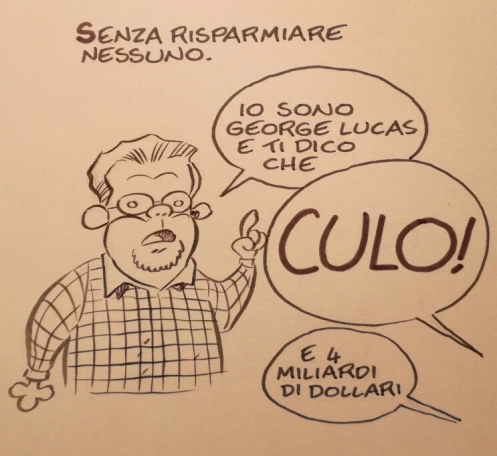 SENZA RISPARMIARE
NESSUNO.
IO SONO
GEORGE LUCAS
E TI DICO
CHE
CULO!
E 4
MILIARDI
DI DOLLARI